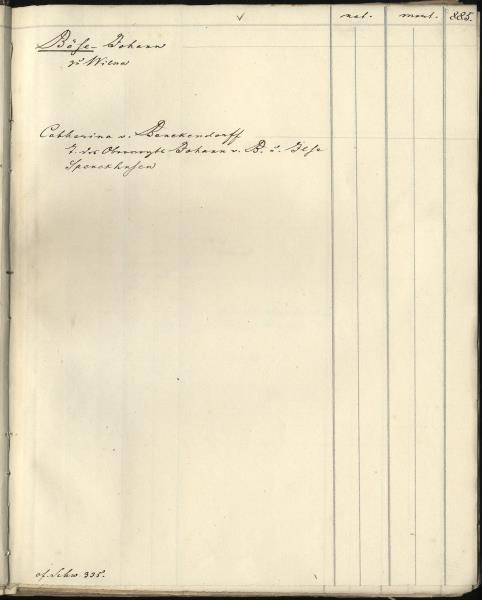 nat. mort. 885.
Böse Johann
zu Wiena
Catharina v. Benckendorff
T. des Obervogts Johann v. B. u. Ilse
Sponckhusen
cf. Schw. 335.